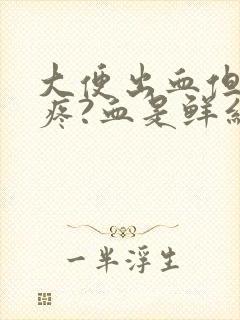 大便出血但
疼?血是鲜红
一半浮生